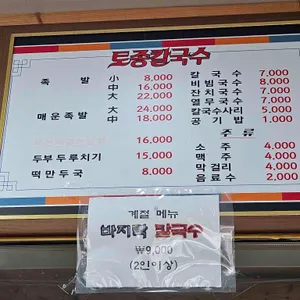 토종칼국수
족 발 小 8,000
中 16,000
大 22,000
大 24,000
매운족발 中 18,000
16,000
두부두루치기 15,000
떡만두국 8,000
칼국수 7,000
비빔국수 8,000
잔치국수 7,000
열무국수 7,000
칼국수사리 5,000
공기밥 1,000
주류
소주 4,000
맥주 4,000
막걸리 4,000
음료수 2,000
계절 메뉴
바지락 칼국수
₩9,000
(2인이상)